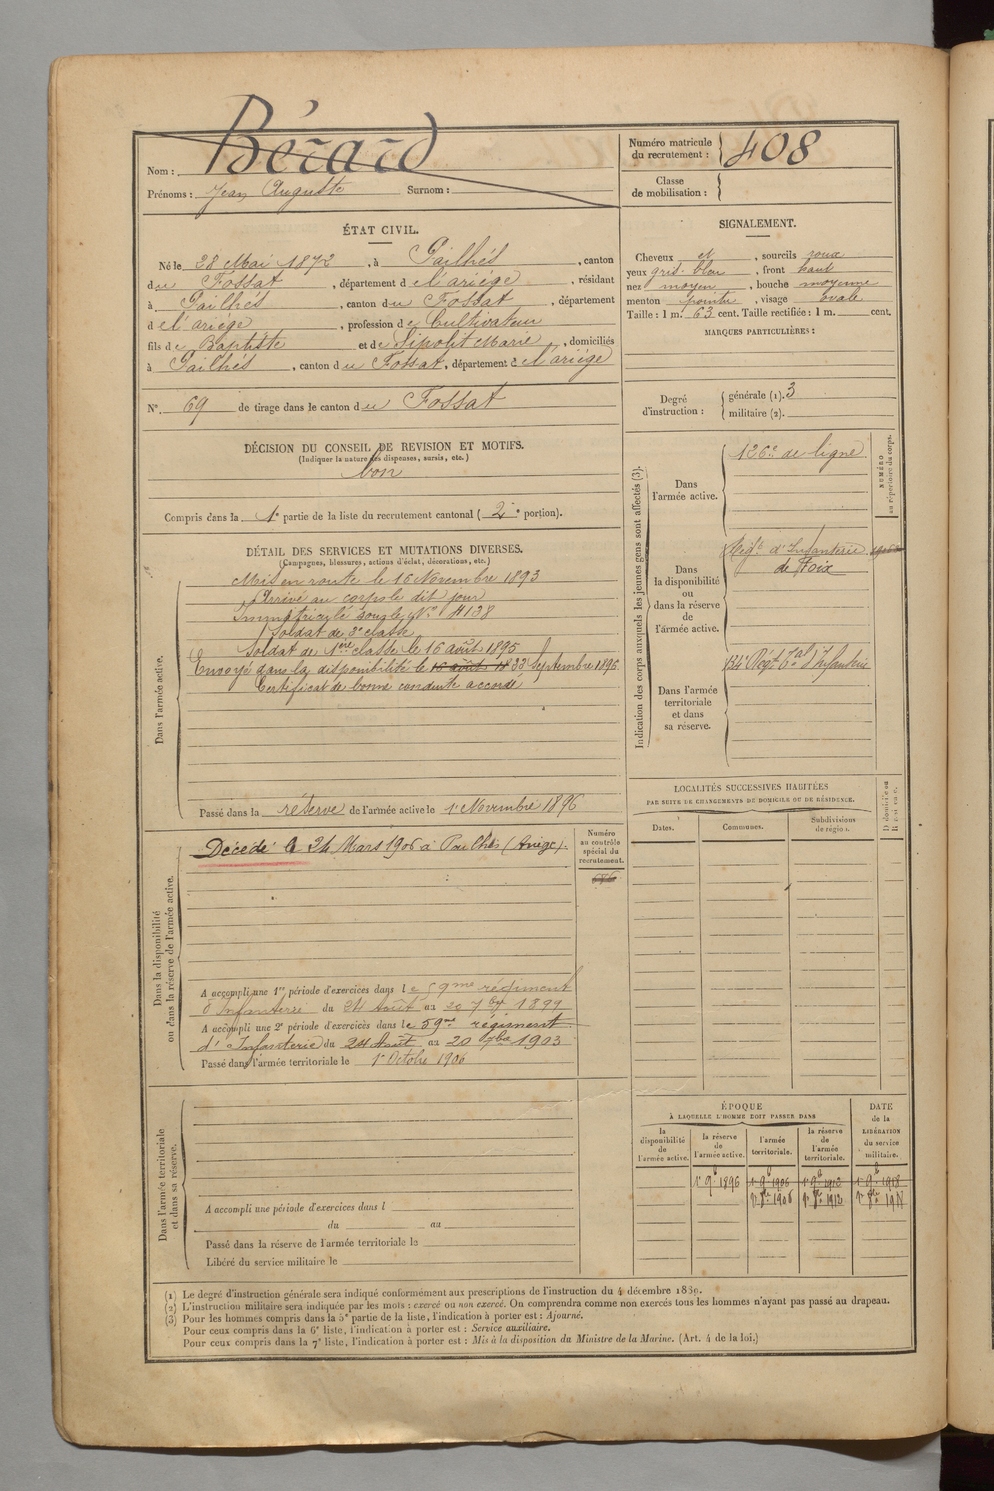 Nom : Bérard
Prénoms : Jean Auguste Surnom :
Numéro matricule du recrutement : 408
Classe de mobilisation :
ÉTAT CIVIL.
Né le 28 Mai 1872, à Pailhés, canton
du Fossat, département de l'ariége, résidant
à Pailhés, canton du Fossat, département
de l'ariége, profession de Cultivateur
fils de Baptiste et de Marie, domiciliés
à Pailhés, canton du Fossat, département de l'ariége
N°. 69 de tirage dans le canton du Fossat
SIGNALEMENT.
Cheveux et, sourcils roux
yeux gris bleu, front haut
nez moyen, bouche moyenne
menton pointu, visage ovale
Taille : 1 m. 63 cent. Taille rectifiée : 1 m. cent.
MARQUES PARTICULIÈRES :
Degré d'instruction : générale (1). 3
militaire (2).
DÉCISION DU CONSEIL DE REVISION ET MOTIFS.
(Indiquer la nature des dispenses, sursis, etc.)
bon
Compris dans la 1e partie de la liste du recrutement cantonal (2e portion).
DÉTAIL DES SERVICES ET MUTATIONS DIVERSES.
(Campagnes, blessures, actions d'éclat, décorations, etc.)
Dans l'armée active.
Mis en route le 16 Novembre 1893
Arrivé au corps le dit jour
Immatriculé sous le N° 4138
Soldat de 2e classe
Soldat de 1ère classe le 16 août 1895
Envoyé dans la disponibilité le 16 août 18 23 Septembre 1896.
Certificat de bonne conduite accordé
Passé dans la réserve de l'armée active le 1er Novembre 1896
Indication des corps auxquels les jeunes gens sont affectés (3).
NUMÉRO au répertoire du corps.
Dans l'armée active.
126e de ligne
Dans la disponibilité ou dans la réserve de l'armée active.
Régt d'Infanterie
de Foix
Dans l'armée territoriale et dans sa réserve.
134e Régt Tal d'Infanterie
LOCALITÉS SUCCESSIVES HABITÉES
PAR SUITE DE CHANGEMENTS DE DOMICILE OU DE RÉSIDENCE.
Dates.
Communes.
Subdivisions de région.
Dans la disponibilité ou dans la réserve de l'armée active.
Numéro au contrôle spécial du recrutement.
Décédé le 24 Mars 1906 à Pailhès (Ariège).
A accompli une 1re période d'exercices dans le 59me régiment
d'Infanterie du 24 Août au 20 7bre 1899
A accompli une 2e période d'exercices dans le 59me régiment
d'Infanterie du 24 Août au 20 7bre 1903
Passé dans l'armée territoriale le 1er Octobre 1906
Dans l'armée territoriale et dans sa réserve.
A accompli une période d'exercices dans l
du au
Passé dans la réserve de l'armée territoriale le
Libéré du service militaire le
ÉPOQUE
À LAQUELLE L'HOMME DOIT PASSER DANS
DATE de la LIBÉRATION du service militaire.
la disponibilité de l'armée active.
la réserve de l'armée active.
l'armée territoriale.
la réserve de l'armée territoriale.
(1) Le degré d'instruction générale sera indiqué conformément aux prescriptions de l'instruction du 4 décembre 1889.
(2) L'instruction militaire sera indiquée par les mots : exercé ou non exercé. On comprendra comme non exercés tous les hommes n'ayant pas passé au drapeau.
(3) Pour les hommes compris dans la 5e partie de la liste, l'indication à porter est : Ajourné.
Pour ceux compris dans la 6e liste, l'indication à porter est : Service auxiliaire.
Pour ceux compris dans la 7e liste, l'indication à porter est : Mis à la disposition du Ministre de la Marine. (Art. 4 de la loi.)